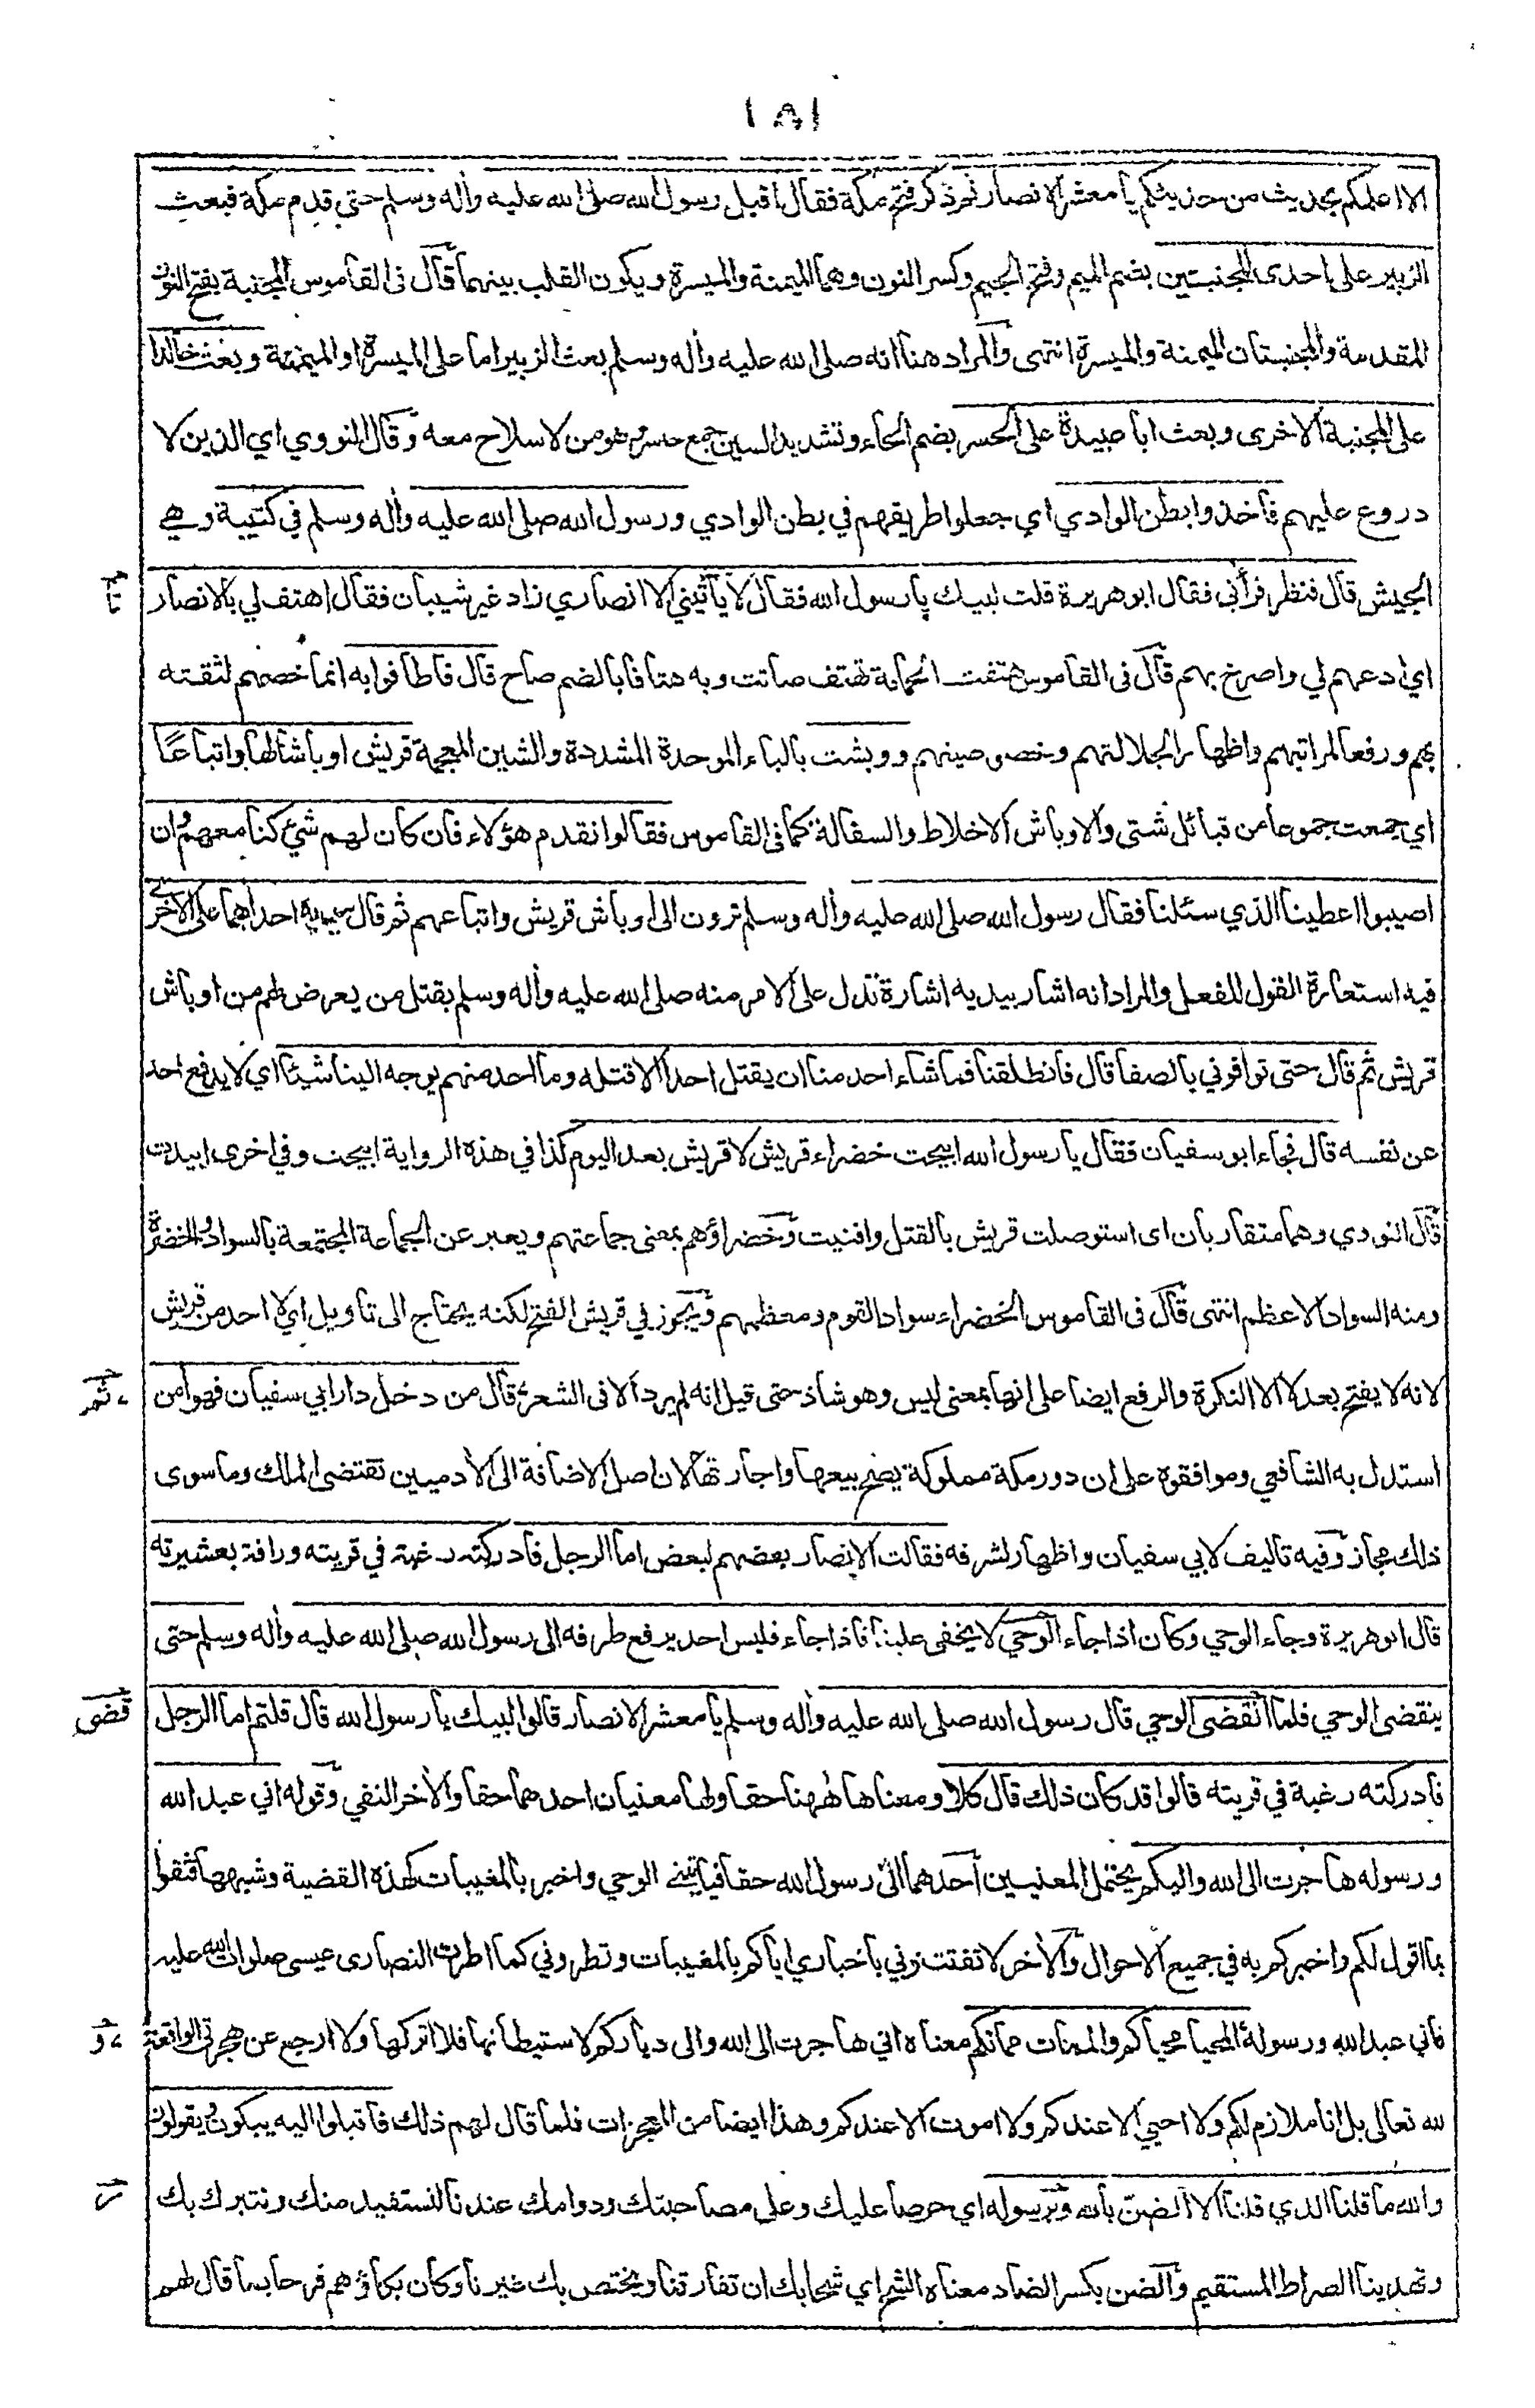 ١٨١
الا اعلمكم بحديث من حديثكم يا معشر الانصار ثم ذكر فتح مكة فقال اقبل رسول الله صلى الله عليه وأله وسلم حتى قدم مكة فبعث
الزبير على احدى المجنبتين بضم الميم وفتح الجيم وكسر النون وهما الميمنة والميسرة ويكون القلب بينهما قال فى القاموس المجنبة بفتح النون
المقدمة والمجنبتان الميمنة والميسرة انتهى والمراد هنا انه صلى الله عليه وأله وسلم بعث الزبير اما على الميسرة او الميمنة وبعث خالدا
على المجنبة الاخرى وبعث ابا عبيدة على الحسر بضم الحاء وتشديد السين جمع حاسر وهو من لا سلاح معه وقال النووي اي الذين لا
دروع عليهم فأخذوا بطن الوادي اي جعلوا طريقهم في بطن الوادي ورسول الله صلى الله عليه وأله وسلم في كتيبة وهي
الجيش قال فنظر فرأني فقال ابو هريرة قلت لبيك يا رسول الله فقال لا يأتيني الا انصاري زاد غير شيبان فقال اهتف لي بالانصار
اي ادعهم لي واصرخ بهم قال فى القاموس هتفت الحمامة تهتف صاتت وبه هتافا بالضم صاح قال فاطافوا به انما خصهم لثقته
بهم ورفعا لمراتبهم واظهارا لجلالتهم وخصوصيتهم ووبشت بالباء الموحدة المشددة والشين المعجمة قريش اوباشا لها واتباعًا
اي جمعت جموعا من قبائل شتى والاوباش الاخلاط والسفالة كما فى القاموس فقالوا نقدم هؤلاء فان كان لهم شئ كنا معهم وان
اصيبوا اعطينا الذي سئلنا فقال رسول الله صلى الله عليه وأله وسلم ترون الى اوباش قريش واتباعهم ثم قال بيديه احداهما على الاخرى
فيه استعارة القول للفعل والمراد انه اشار بيديه اشارة تدل على الامر منه صلى الله عليه وأله وسلم بقتل من يعرض لهم من اوباش
قريش ثم قال حتى توافوني بالصفا قال فانطلقنا فما شاء احد منا ان يقتل احدا الا قتله وما احد منهم يوجه الينا شيئا اي لا يدفع احد
عن نفسه قال فجاء ابو سفيان فقال يا رسول الله ابيحت خضراء قريش لا قريش بعد اليوم كذا في هذه الرواية ابيحت وفي اخرى ابيدت
قال النووي وهما متقاربان اى استوصلت قريش بالقتل وافنيت وخضراؤهم بمعنى جماعتهم ويعبر عن الجماعة المجتمعة بالسواد والخضرة
ومنه السواد الاعظم انتهى قال فى القاموس الخضراء سواد القوم ومعظمهم ويجوز في قريش الفتح لكنه يحتاج الى تاويل اي لا احد من قريش
لانه لا يفتح بعد لا الا النكرة والرفع ايضا على انها بمعنى ليس وهو شاذ حتى قيل انه لم يرد الا فى الشعر قال من دخل دار ابي سفيان فهو امن
استدل به الشافعي وموافقوه على ان دور مكة مملوكة يصح بيعها واجارتها لان اصل الاضافة الى الأدميين تقتضى الملك وما سوى
ذلك مجاز وفيه تاليف لابي سفيان واظهار لشرفه فقالت الانصار بعضهم لبعض اما الرجل فادركته رغبة في قريته ورافة بعشيرته
قال ابو هريرة وجاء الوحي وكان اذا جاء الوحي لا يخفى علينا فاذا جاء فليس احد يرفع طرفه الى رسول الله صلى الله عليه وأله وسلم حتى
ينقضى الوحي فلما انقضى الوحي قال رسول الله صلى الله عليه وأله وسلم يا معشر الانصار قالوا لبيك يا رسول الله قال قلتم اما الرجل
فادركته رغبة في قريته قالوا قد كان ذلك قال كلا ومعناها هٰهنا حقا ولها معنيان احدهما حقا والأخر النفي وقوله اني عبد الله
ورسوله هاجرت الى الله واليكم يحتمل المعنيين احدهما انى رسول الله حقا فيأتيني الوحي واخبر بالمغيبات كهذه القضية وشبهها فثقوا
بما اقول لكم واخبركم به في جميع الاحوال والأخر لا تفتتنوا بي باخباري اياكم بالمغيبات وتطروني كما اطرت النصارى عيسى صلوات الله عليه
فاني عبد الله ورسوله المحيا محياكم والممات مماتكم معناه اني هاجرت الى الله والى دياركم لاستيطانها فلا اتركها ولا ارجع عن هجرتى الواقعة
لله تعالى بل انا ملازم لكم ولا احيي الا عندكم ولا اموت الا عندكم وهذا ايضا من المعجزات فلما قال لهم ذلك فاقبلوا اليه يبكون ويقولون
والله ما قلنا الذي قلنا الا الضن بالله وبرسوله اي حرصا عليك وعلى مصاحبتك ودوامك عندنا لنستفيد منك ونتبرك بك
وتهدينا الصراط المستقيم والضن بكسر الضاد معناه الشح اي شحا بك ان تفارقنا ويختص بك غيرنا وكان بكاؤهم فرحا بما قال لهم